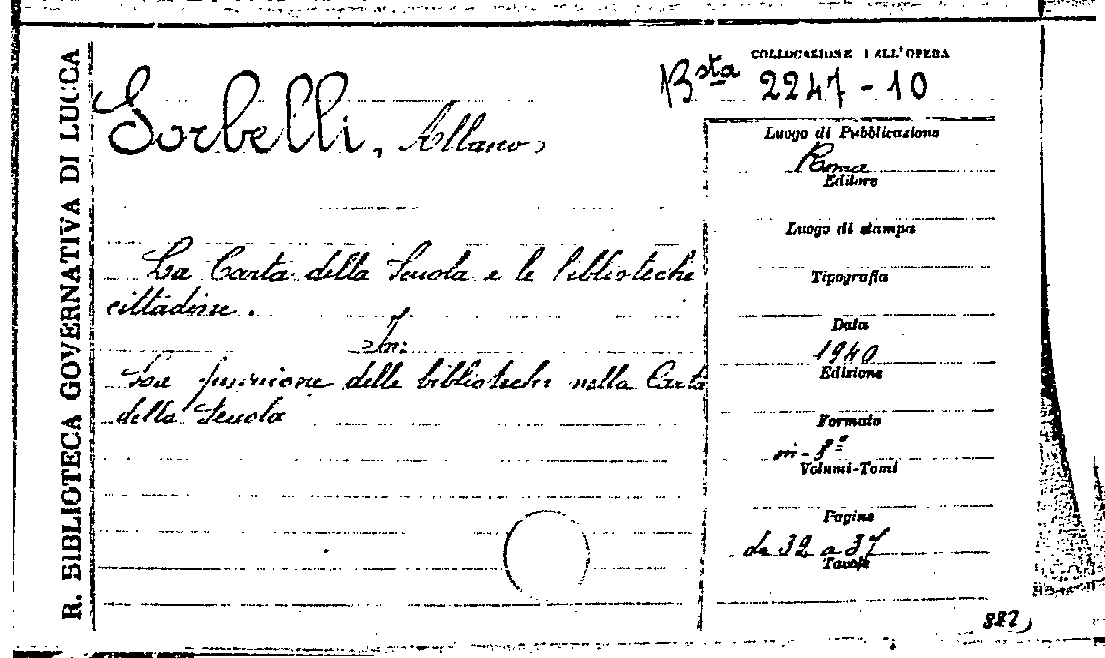 R. BIBLIOTECA GOVERNATIVA DI LUCCA
Sorbelli, Albano,
La Carta della Scuola e le biblioteche
cittadine.
In:
La funzione delle biblioteche nella Carta
della Scuola
COLLOCAZIONE DELL'OPERA
Bsta 2247-10
Luogo di Pubblicazione
Roma
Editore
Luogo di stampa
Tipografia
Data
1940
Edizione
Formato
in-8º
Volumi-Tomi
Pagine
da 32 a 37
Tavole